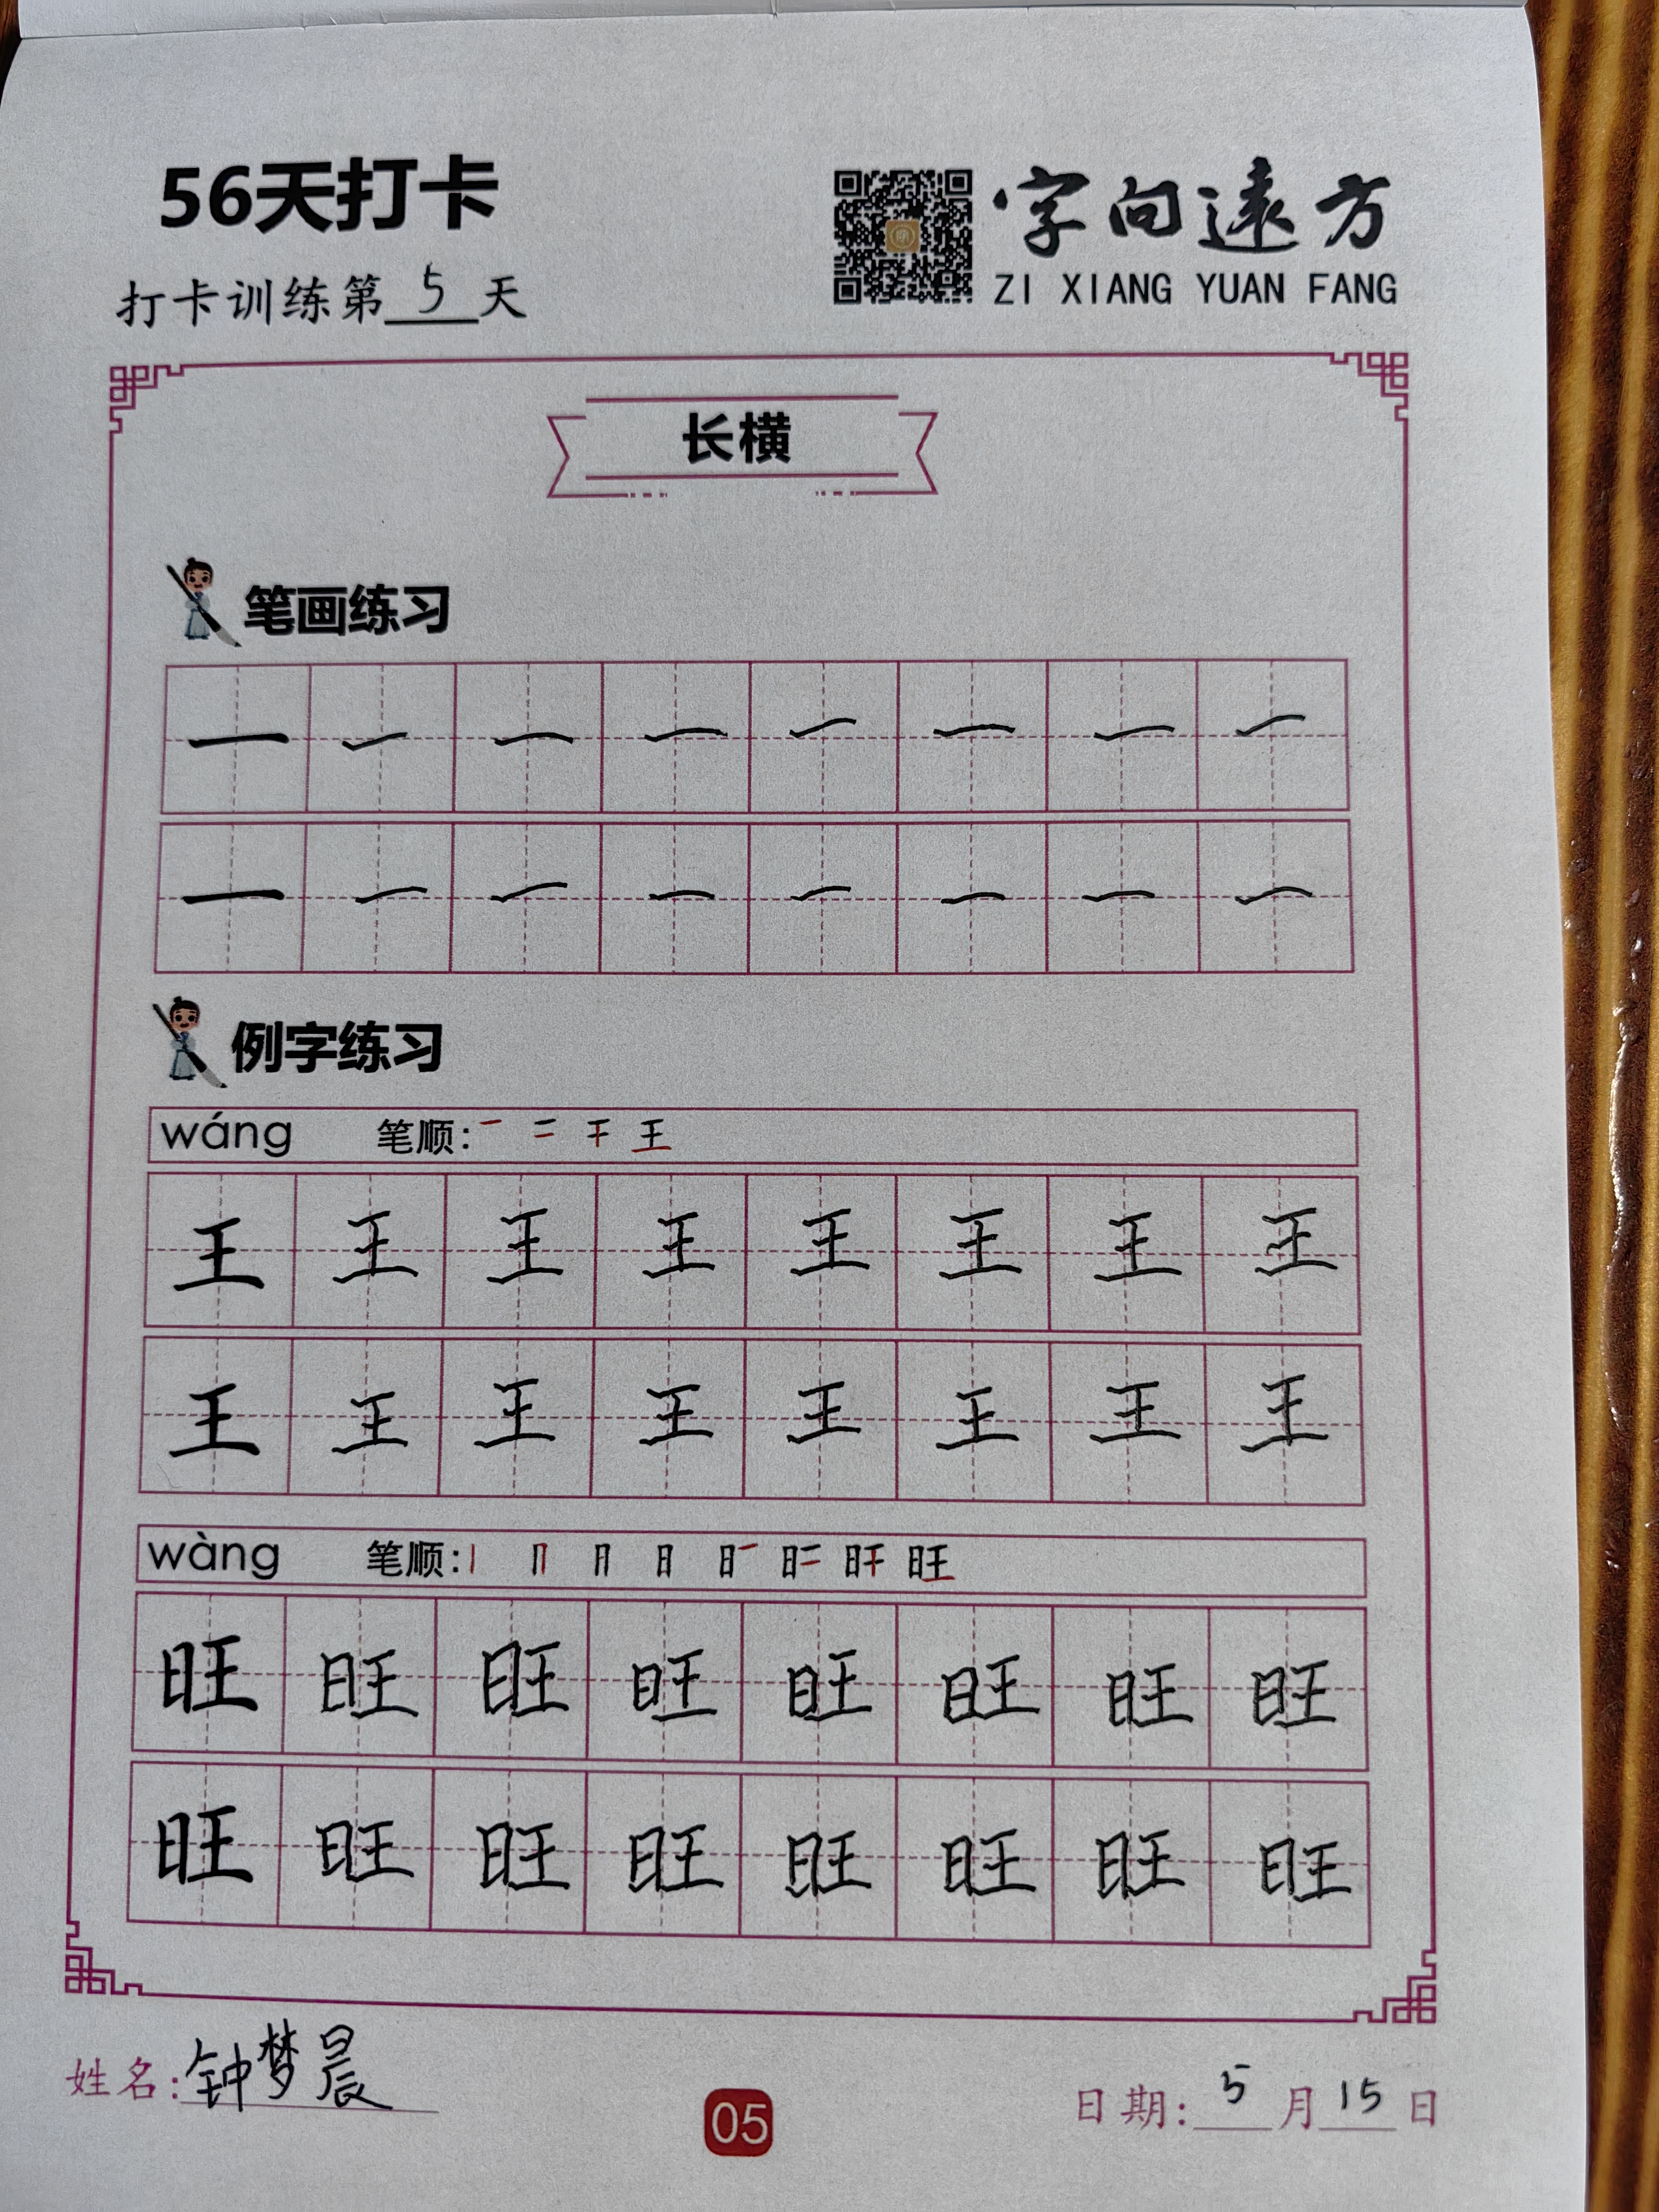 56天打卡
字向遠方
打卡训练第5天
ZI XIANG YUAN FANG
长横
笔画练习
一 一 一 一 一 一 一 一
一 一 一 一 一 一 一 一
例字练习
wáng 笔顺: 一 二 干 王
王 王 王 王 王 王 王 王
王 王 王 王 王 王 王 王
wàng 笔顺:
旺 旺 旺 旺 旺 旺 旺 旺
旺 旺 旺 旺 旺 旺 旺 旺
姓名:钟梦晨
05
日期:5月15日